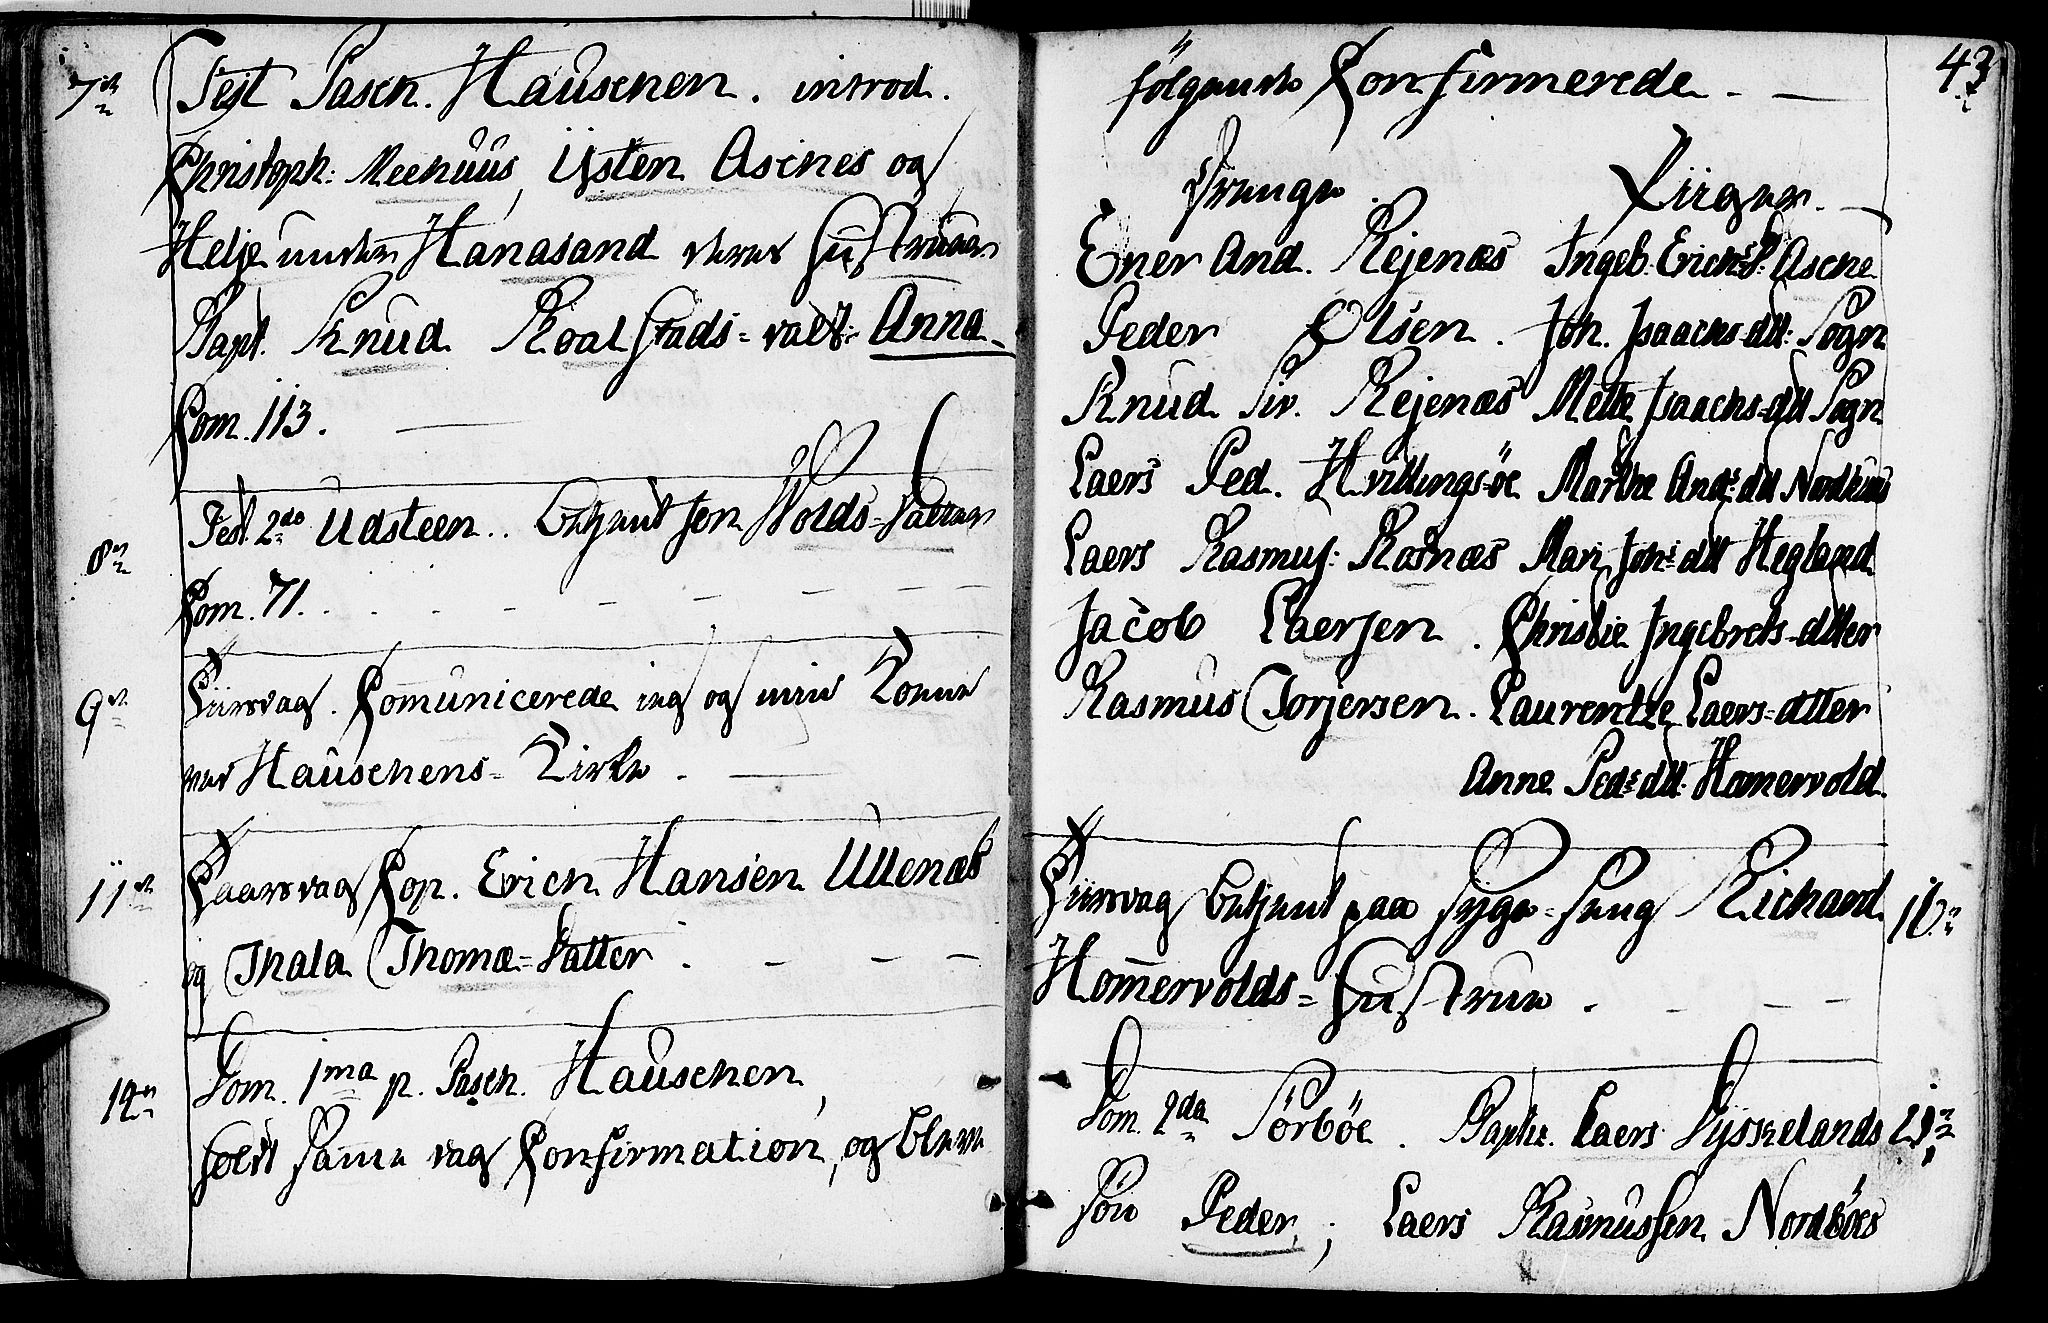 7de Fest Pasch. Hauschen. introd.
Christoph: Meehuus, Østen Aschnes og
Helje under Hanasand deres hustruer
Bapt. Knud Roalstads=datt: Anna
Com. 113.
8de Fest. 2do Udsteen. betient Jon Wolds=datter
Com. 71.
9de Tiirsdag. Comunicerede ieg og min Konne
ved Hauschens=Kirke.
11te Taarsdag Cop. Erich Hansen Ullenæs
og Thala Thomæ=datter.
12te Dom. 1ma p. Pasch. Hauschen,
holdt samme dag Confirmation, og bleve
43
følgende Confirmerede
Drenge. Piiger.
Ener And. Rejenæs Ingeb. Erichsd: Aschne
Peder Olsen. Joh. Isaachs=dtt: Sogn
Knud Siv. Rejenæs Mette Isaachs=dtt Sogn
Laers Ped. Hvittingsöe Marthe Ands dtt Nordhuus
Laers Rasmuss: Rosnæs Mari Johs dtt Hegland
Jacob Laersen. Christie Ingebrets=dtter
Rasmus Torjersen. Laurentze Laers=dtter
Anne Peds dtt. Homervold.
Tiirsdag betient paa syge=seng Richard 16de
Homervolds=hustrue.
Dom. 2da Sörböe. Baptz. Laers Tysselands 21de
Søn Peder; Laers Rasmussen Nordböes